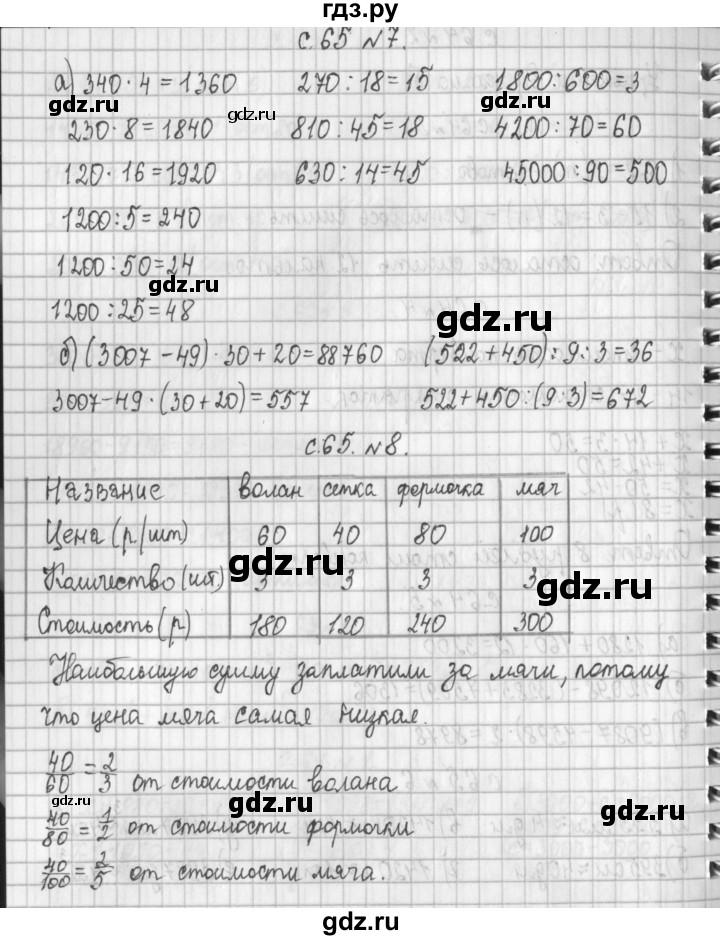 гдз.ру
с.65 №7.
а) 340 · 4 = 1360 270 : 18 = 15 1800 : 600 = 3
gdz.ru gdz.ru gdz.ru
230 · 8 = 1840 810 : 45 = 18 4200 : 70 = 60
120 · 16 = 1920 630 : 14 = 45 45000 : 90 = 500
1200 : 5 = 240
1200 : 50 = 24
gdz.ru
1200 : 25 = 48 gdz.ru
б) (3007 - 49) · 30 + 20 = 88760 (522 + 450) : 9 : 3 = 36
3007 - 49 · (30 + 20) = 557 522 + 450 : (9 : 3) = 672
с.65. №8.
Название волан сетка формочка мяч
Цена (р/шт) 60 40 80 100
gdz.ru
Количество (шт) 3 3 3 3
gdz.ru
Стоимость (р) 180 120 240 300
Наибольшую сумму заплатили за мячи, потому
что цена мяча самая низкая.
40/60 = 2/3 от стоимости волана
gdz.ru gdz.ru gdz.ru
40/80 = 1/2 от стоимости формочки
40/100 = 2/5 от стоимости мяча.
gdz.ru
гдз.ру